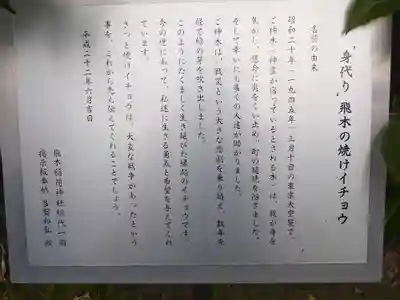 "身代り"飛木の焼けイチョウ
名称の由来
昭和二十年(一九四五年)三月十日の東京大空襲で、
ご神木(神霊が宿っているとされる木)は、我が身を
焦がし、懸命に炎をくい止め、町の延焼を防ぎました。
そして幸いにも多くの人達が助かりました。
ご神木は、戦災という大きな悲劇を乗り越え、数年を
経て緑の芽を吹き出しました。
このようにたくましく生き延びた縁起のイチョウです。
今の世にあって、私達に生きる勇気と希望を与えてくれ
ています。
きっと焼けイチョウは、大変な戦争があったという
事を、これから先も伝えてくれることでしょう。
平成二十二年六月吉日
飛木稲荷神社総代一同